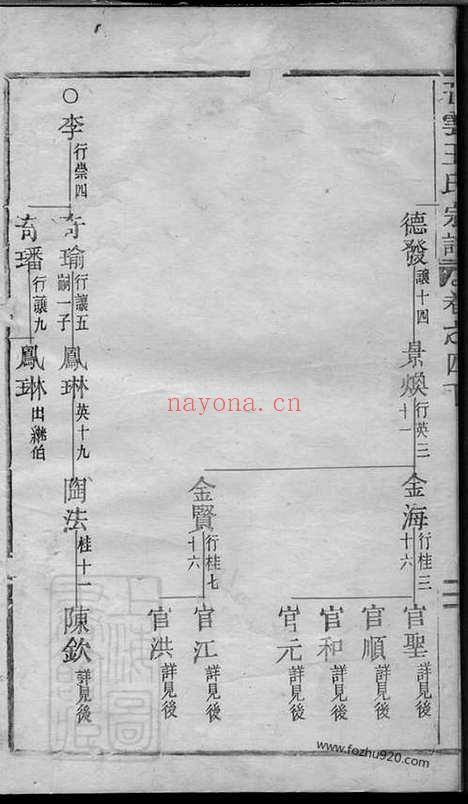 王氏宗譜 卷之四下
德發 讓十四
景煥 行英三十一
金海 行桂三十六
官聖 詳見後
官順 詳見後
官和 詳見後
官元 詳見後
金賢 行桂七十六
官江 詳見後
官洪 詳見後
○李 行崇四
奇瑜 行讓五 嗣一子
鳳琳 英十九
陶法 桂十一
陳欽 詳見後
奇璠 行讓九
鳳琳 出繼伯
nayona.cn
www.fozhu920.com